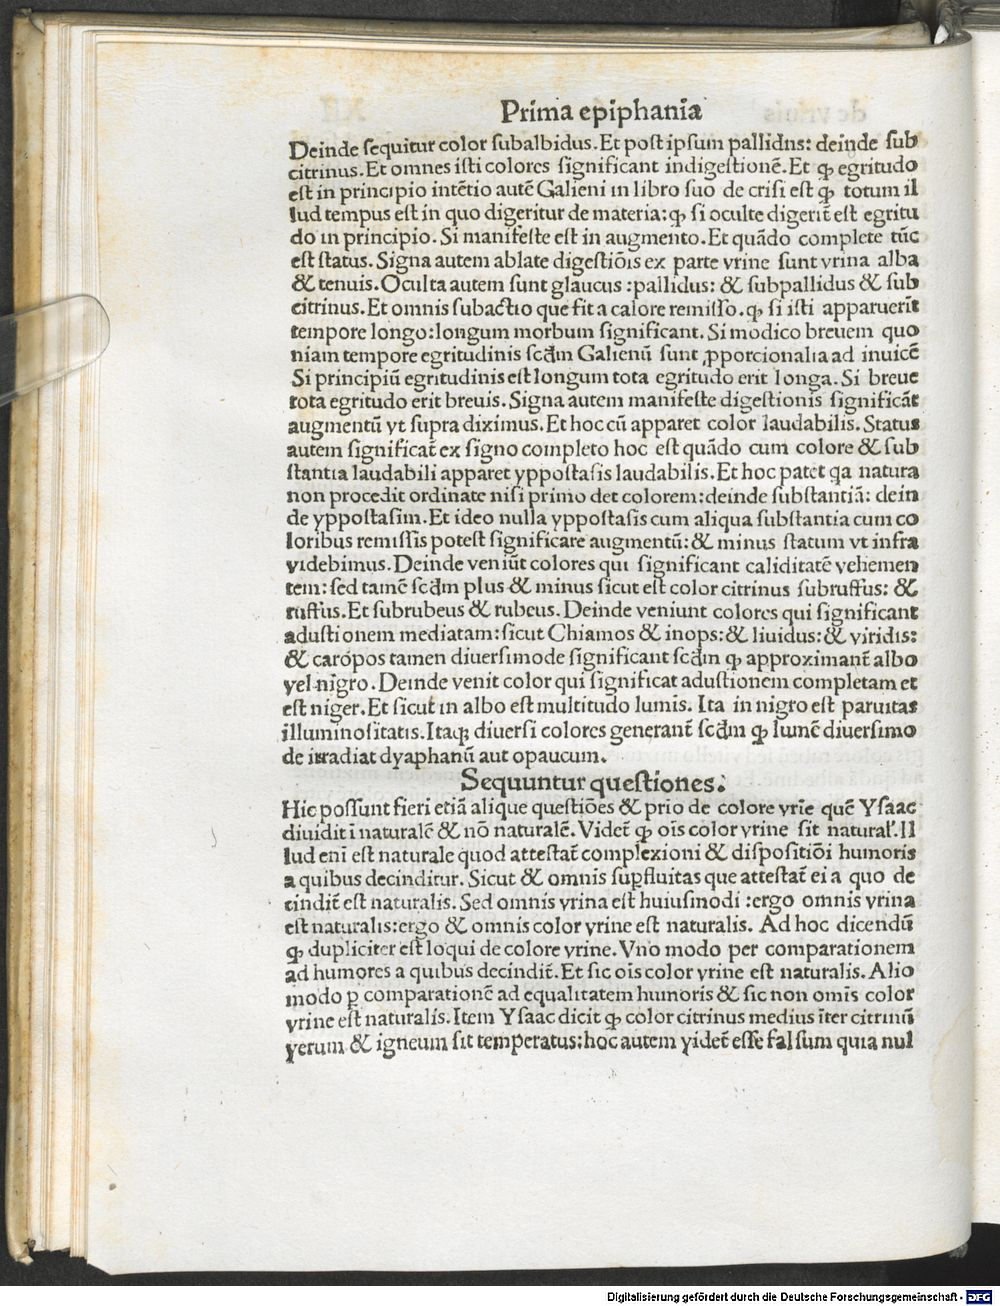 Prima epiphania
Deinde sequitur color subalbidus. Et post ipsum pallidns: deinde sub
citrinus. Et omnes isti colores significant indigestionē. Et ꝙ egritudo
est in principio intētio autē Galieni in libro suo de crisi est ꝙ totum il
lud tempus est in quo digeritur de materia: ꝙ si oculte digerit̄ est egritu
do in principio. Si manifeste est in augmento. Et quādo complete tūc
est status. Signa autem ablate digestiōis ex parte vrine sunt vrina alba
& tenuis. Oculta autem sunt glaucus : pallidus: & subpallidus & sub
citrinus. Et omnis subactio que fit a calore remisso. ꝙ si isti apparuerīt
tempore longo: longum morbum significant. Si modico breuem quo
niam tempore egritudinis scd̄m Galienū sunt ꝓporcionalia ad inuicē
Si principiū egritudinis est longum tota egritudo erit longa. Si breue
tota egritudo erit breuis. Signa autem manifeste digestionis significāt
augmentū vt supra diximus. Et hoc cū apparet color laudabilis. Status
autem significat̄ ex signo completo hoc est quādo cum colore & sub
stantia laudabili apparet yppostasis laudabilis. Et hoc patet qa natura
non procedit ordinate nisi primo det colorem: deinde substantiā: dein
de yppostasim. Et ideo nulla yppostasis cum aliqua substantia cum co
loribus remissis potest significare augmentū: & minus statum vt infra
videbimus. Deinde veniūt colores qui significant caliditatē vehemen
tem: sed tamē scd̄m plus & minus sicut est color citrinus subruffus: &
ruffus. Et subrubeus & rubeus. Deinde veniunt colores qui significant
adustionem mediatam: sicut Chiamos & inops: & liuidus: & viridis:
& caropos tamen diuersimode significant scd̄m ꝙ approximant̄ albo
vel nigro. Deinde venit color qui significat adustionem completam et
est niger. Et sicut in albo est multitudo lumis. Ita in nigro est paruitas
illuminositatis. Itaqꝫ diuersi colores generant̄ scd̄m ꝙ lumē diuersimo
de irradiat dyaphanū aut opaucum.
Sequuntur questiones.
Hic possunt fieri etiā alique questiōes & prio de colore vrīe quē Ysaac
diuidit ī naturalē & nō naturalē. Videt̄ ꝙ oīs color vrine sit natural'. Il
lud enī est naturale quod attestat̄ complexioni & dispositiōi humoris
a quibus decinditur. Sicut & omnis suꝑfluitas que attestat̄ ei a quo de
cindit̄ est naturalis. Sed omnis vrina est huiusmodi : ergo omnis vrina
est naturalis: ergo & omnis color vrine est naturalis. Ad hoc dicendū
ꝙ dupliciter est loqui de colore vrine. Vno modo per comparationem
ad humores a quibus decindit̄. Et sic oīs color vrine est naturalis. Alio
modo ꝑ comparationē ad equalitatem humoris & sic non omīs color
vrine est naturalis. Item Ysaac dicit ꝙ color citrinus medius īter citrinū
verum & igneum sit temperatus: hoc autem videt̄ esse falsum quia nul
Digitalisierung gefördert durch die Deutsche Forschungsgemeinschaft - DFG